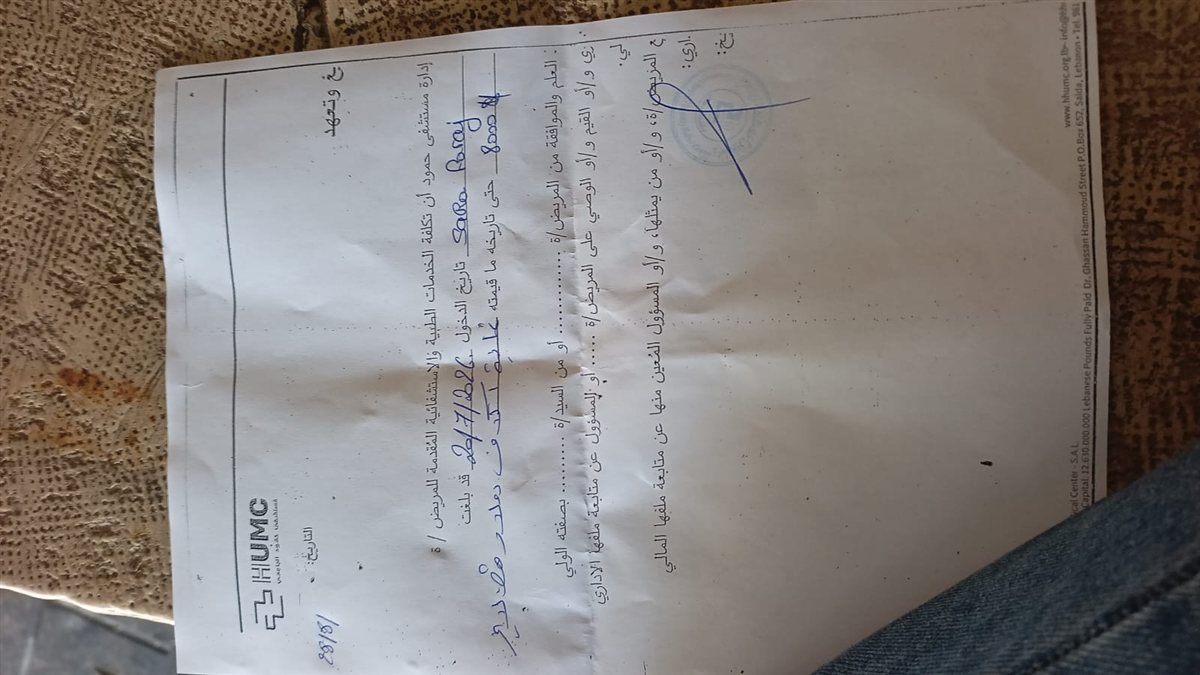 HUMC
مستشفى حمود الجامعي
التاريخ:
غ وتعهد
إدارة مستشفى حمود أن تكلفة الخدمات الطبية والاستشفائية المُقدمة للمريض /ة
Sara Faraj تاريخ الدخول 26/7/2026 قد بلغت
8000 $ حتى تاريخه ما قيمته ثمانية آلاف دولار
: العلم والموافقة من المريض/ة ............ أو من السيد/ة ......... بصفته الولي
ري و/أو القيم و/أو الوصي على المريض/ة ...... أو المسؤول عن متابعة ملفها الاداري
لي.
ع المريض/ة، و/أو من يمثلها، و/أو المسؤول المُعين منها عن متابعة ملفها المالي
اري:
يخ:
www.hhumc.org.lb-
cal Center - S.A.L
Capital: 12.630.000.000 Lebanese Pounds Fully Paid Dr. Ghassan Hammoud Street P.O.Box 652, Saida, Lebanon • Tel. 961